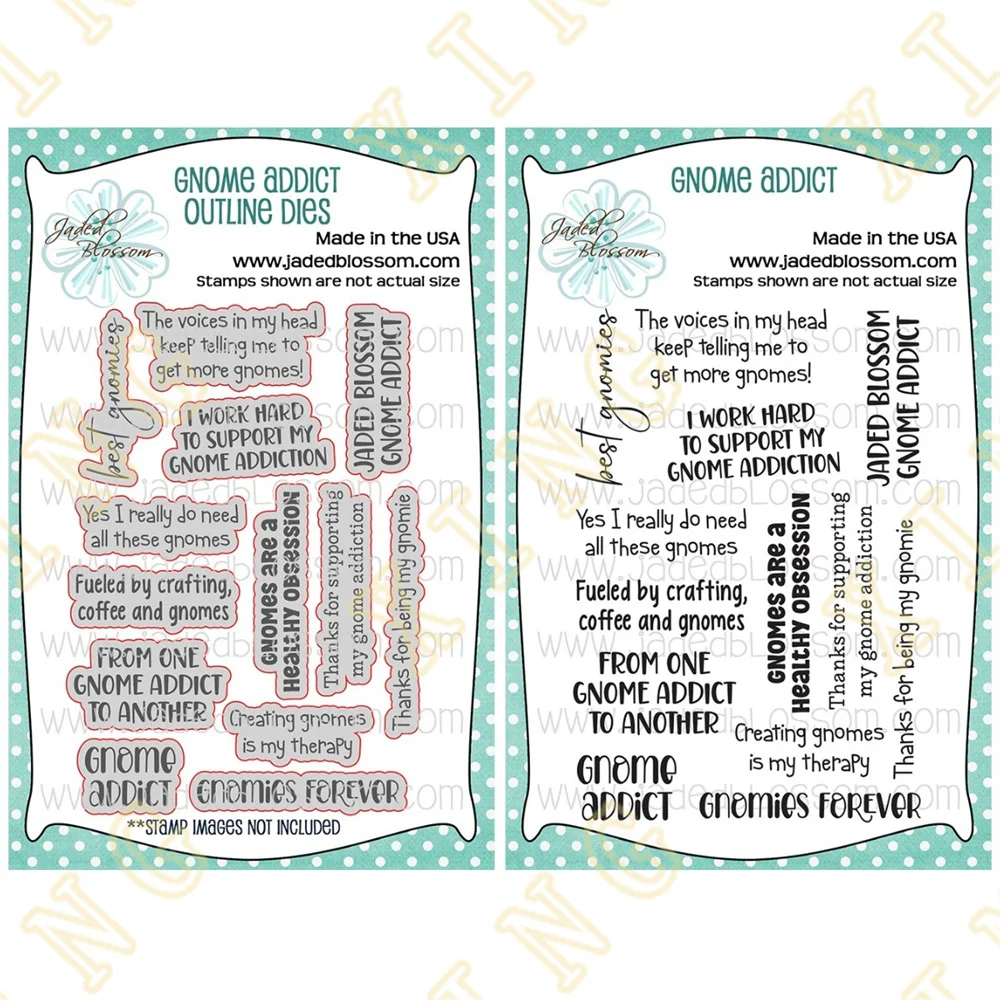 GNOME ADDICT
OUTLINE DIES
Jaded
Blossom
Made in the USA
www.jadedblossom.com
Stamps shown are not actual size
best gnomies
The voices in my head
keep telling me to
get more gnomes!
JADED BLOSSOM
GNOME ADDICT
I WORK HARD
TO SUPPORT MY
GNOME ADDICTION
Yes I really do need
all these gnomes
GNOMES ARE A
HEALTHY OBSESSION
Thanks for supporting
my gnome addiction
Thanks for being my gnomie
Fueled by crafting,
coffee and gnomes
FROM ONE
GNOME ADDICT
TO ANOTHER
Creating gnomes
is my therapy
GNOME
ADDICT
GNOMIES FOREVER
**STAMP IMAGES NOT INCLUDED
GNOME ADDICT
Jaded
Blossom
Made in the USA
www.jadedblossom.com
Stamps shown are not actual size
best gnomies
The voices in my head
keep telling me to
get more gnomes!
JADED BLOSSOM
GNOME ADDICT
I WORK HARD
TO SUPPORT MY
GNOME ADDICTION
Yes I really do need
all these gnomes
GNOMES ARE A
HEALTHY OBSESSION
Thanks for supporting
my gnome addiction
Thanks for being my gnomie
Fueled by crafting,
coffee and gnomes
FROM ONE
GNOME ADDICT
TO ANOTHER
Creating gnomes
is my therapy
GNOME
ADDICT
GNOMIES FOREVER